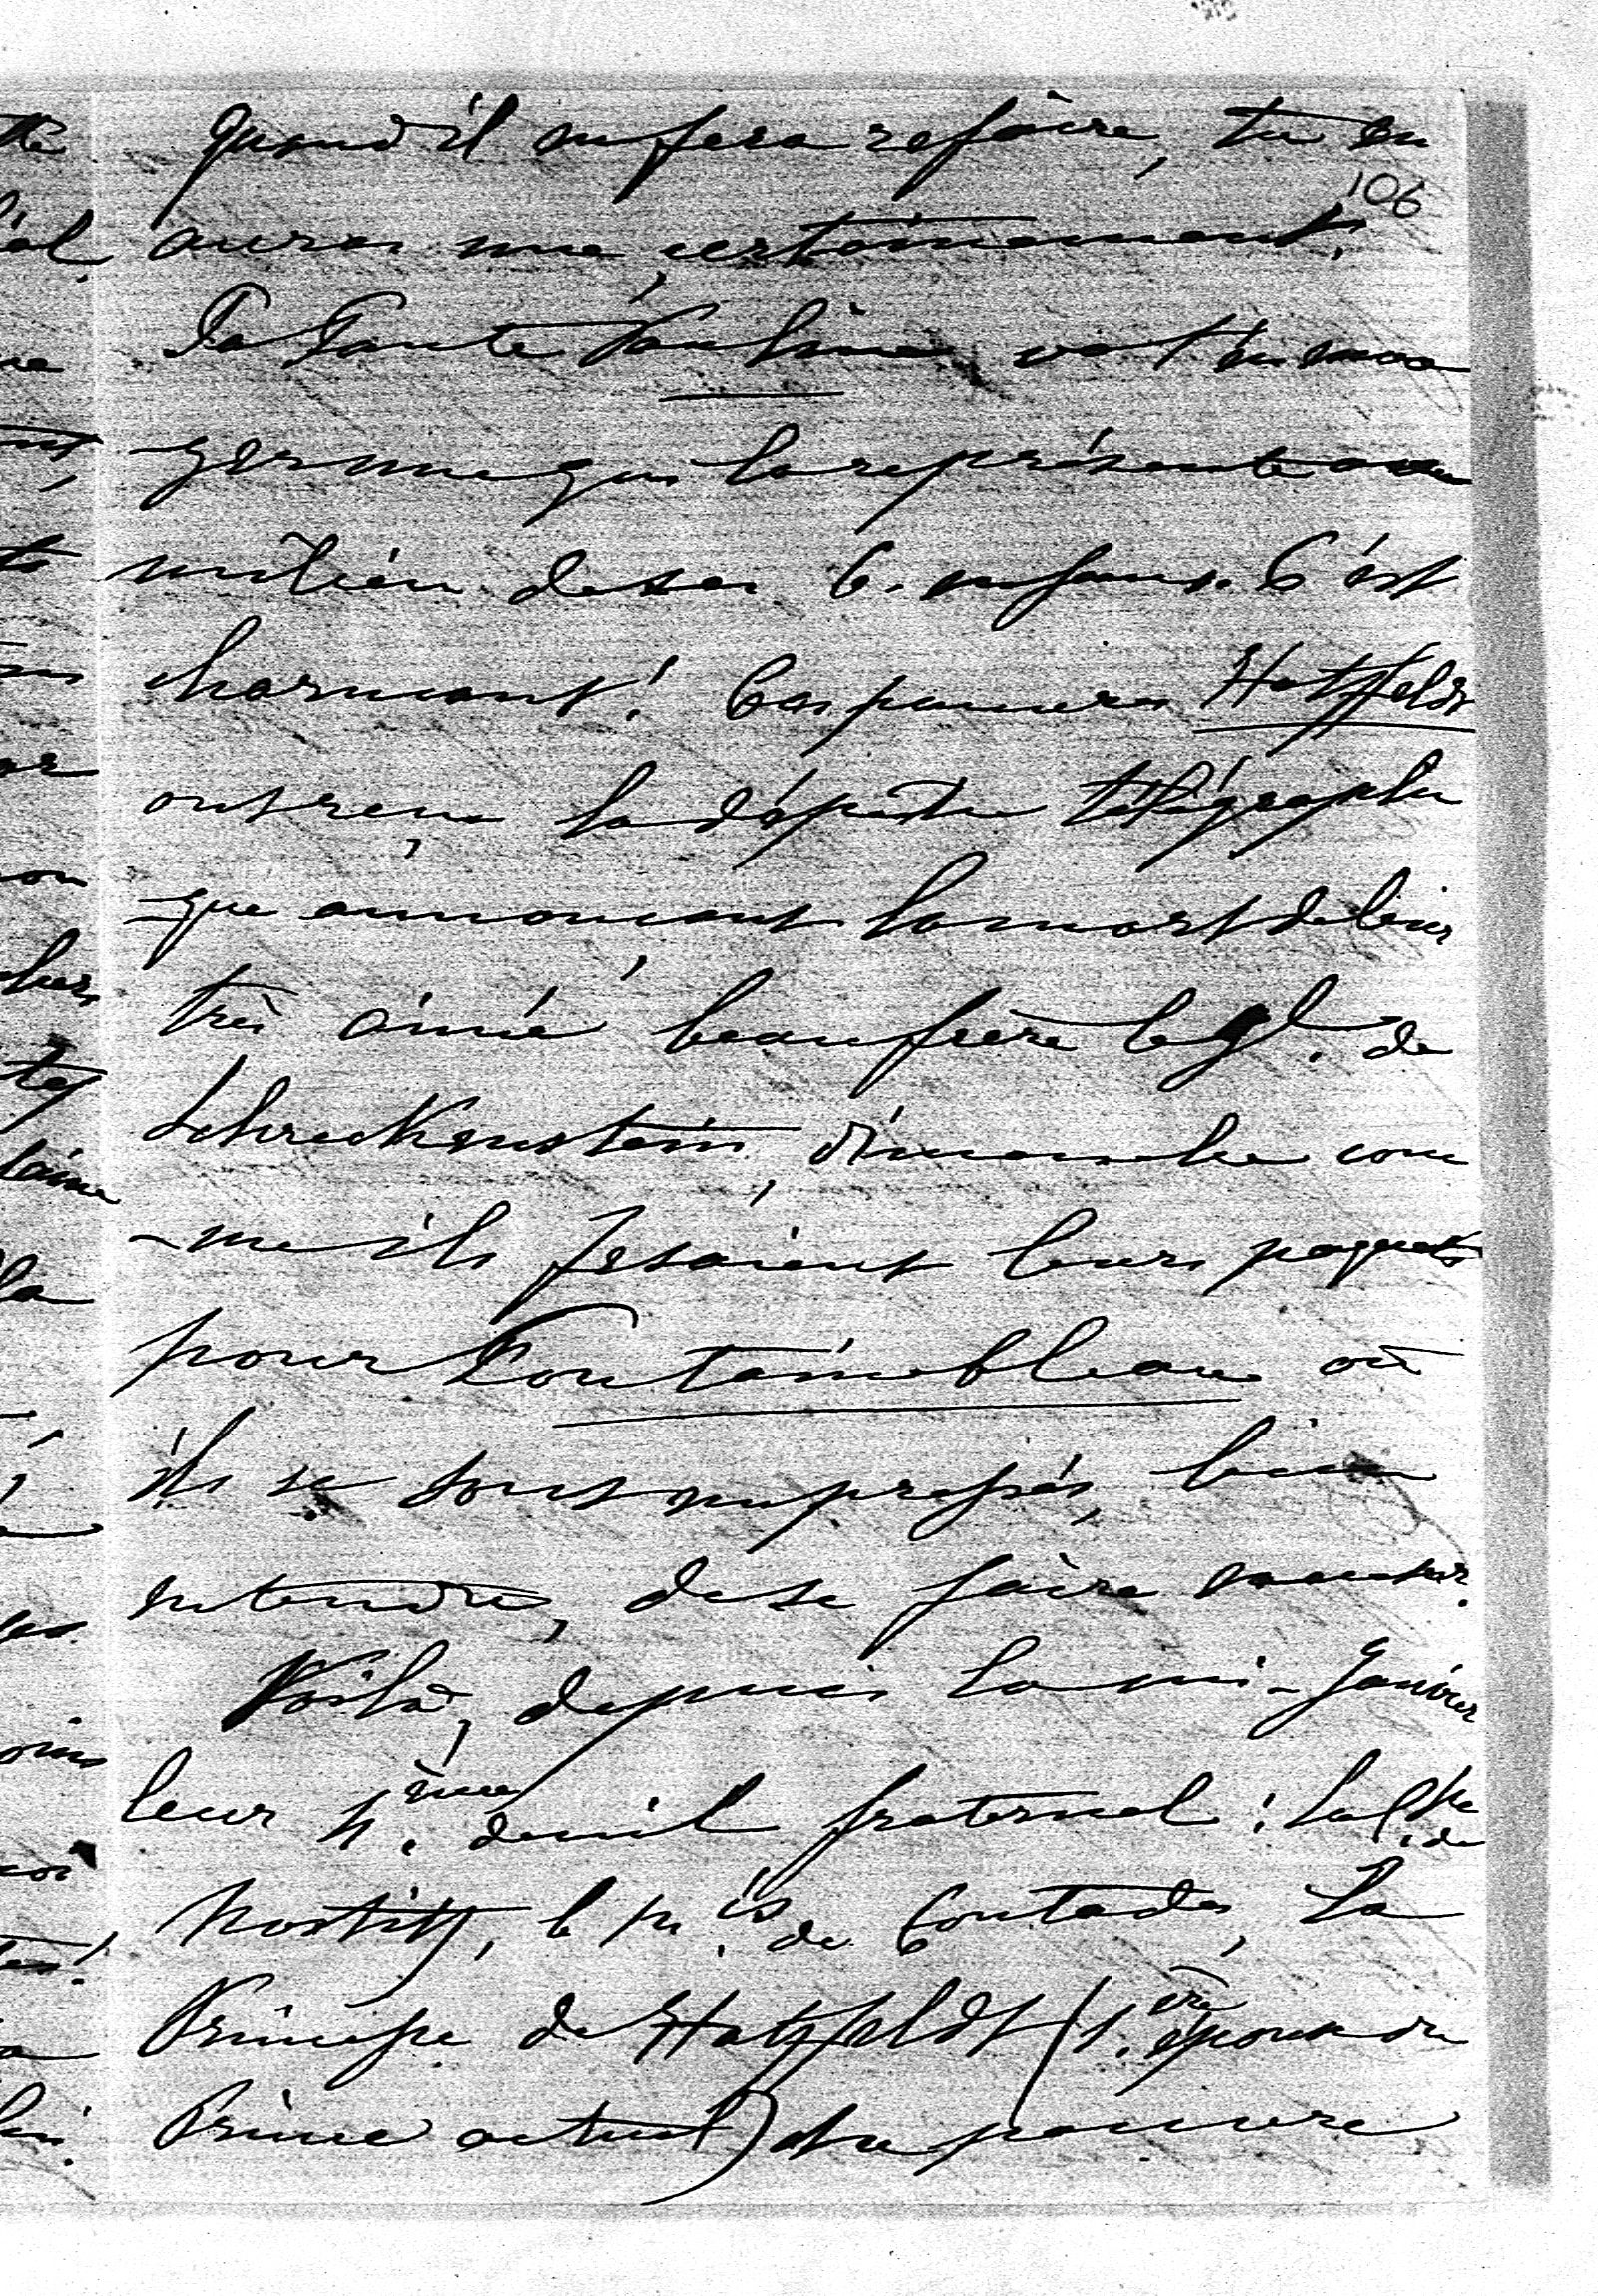 quand il en fera refaire, tu en
106
auras une, certainement.
Ta Tante Pauline va t'en envo
-yer une qui la représente au
milieu de ses 6. enfans. C'est
charmant! Ces pauvres Hatzfeldt
ont reçu la dépêche télégraphi
-que annonçant la mort de leur
très aimé beaufrère le gl. de
Schreckenstein, dimanche com
-me ils fesaient leurs paquets
pour Fontainebleau où
ils se sont empressés, bien
entendu, de se faire excuser.
Voilà, depuis la mi-Janvier
leur 4.ème deuil fraternel: la Ctesse de
Nostitz, le M.is de Contades, la
Princesse de Hatzfeldt (1.ère épouse du
Prince actuel) et ce pauvre